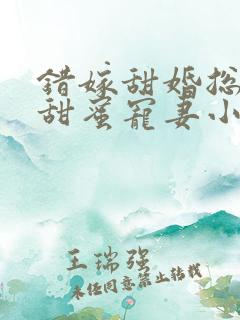 錯嫁甜婚总
甜蜜宠妻小
王瑞强
未经同意禁止转载